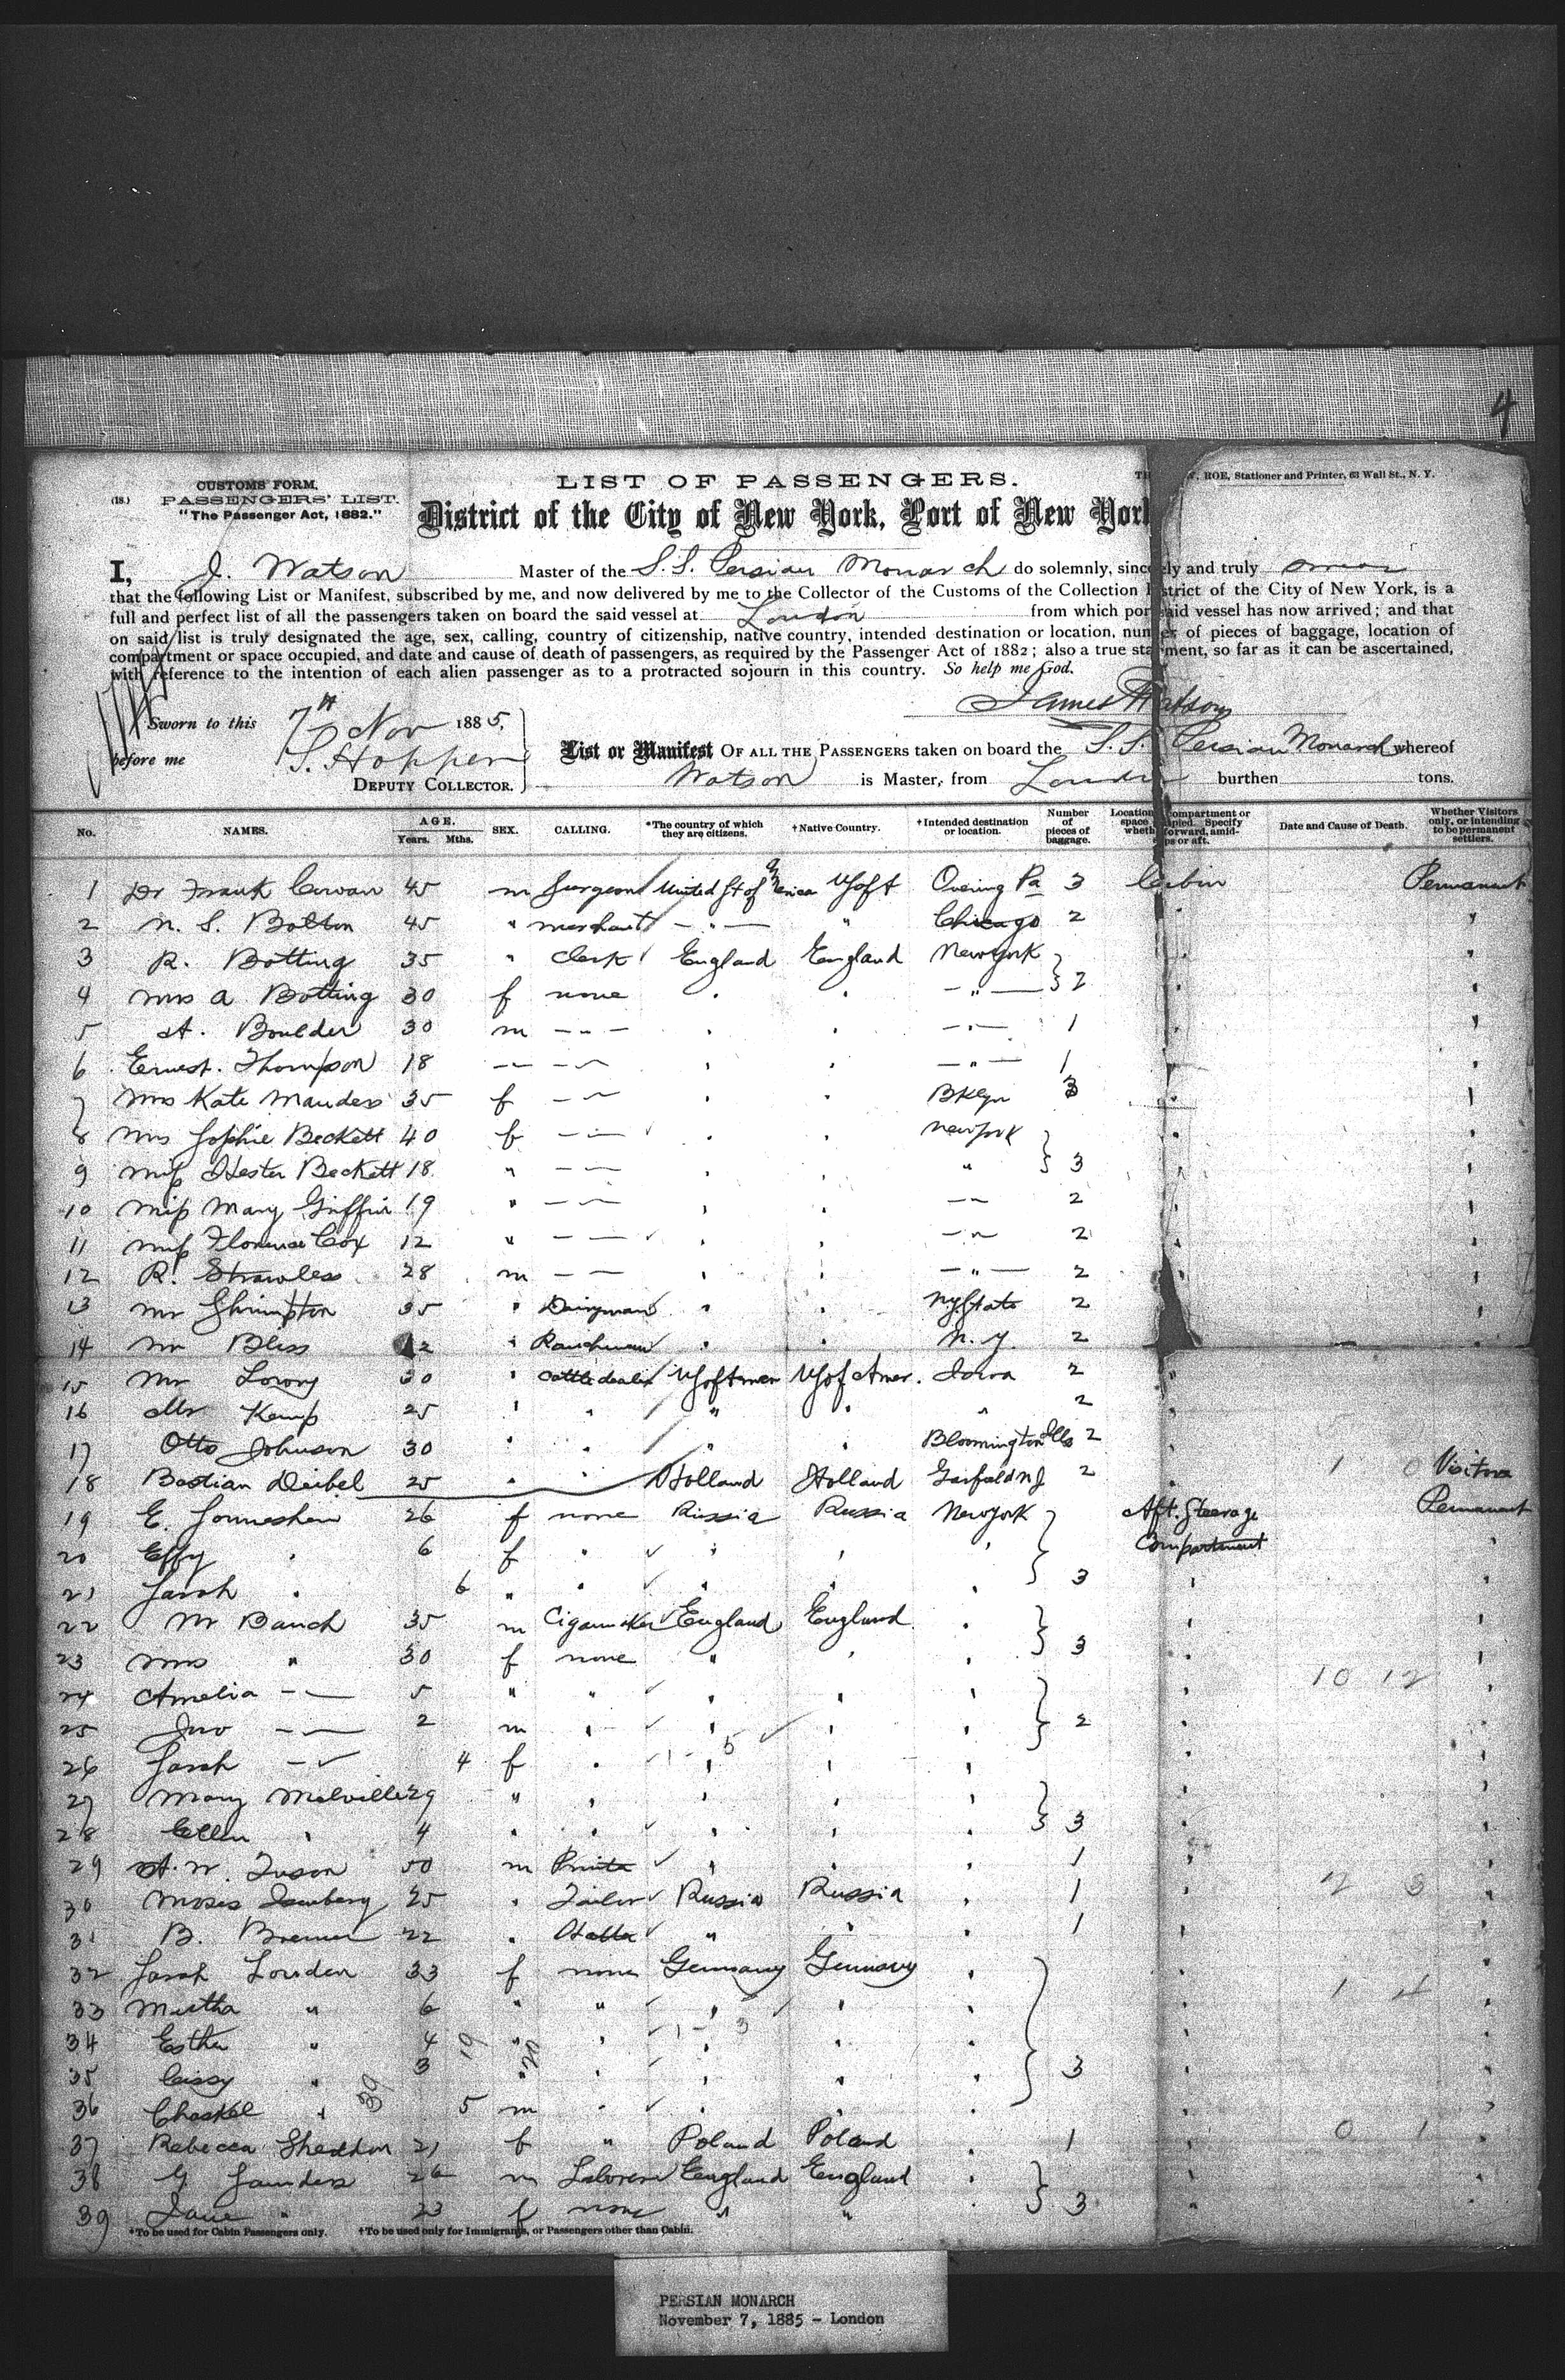 4
(18.)
CUSTOMS FORM.
PASSENGERS' LIST.
"The Passenger Act, 1882."
LIST OF PASSENGERS.
ROE, Stationer and Printer, 63 Wall St., N. Y.
District of the City of New York, Port of New York
I, J. Watson Master of the S.S. Persian Monarch do solemnly, sincerely and truly swear
that the following List or Manifest, subscribed by me, and now delivered by me to the Collector of the Customs of the Collection District of the City of New York, is a
full and perfect list of all the passengers taken on board the said vessel at London from which port said vessel has now arrived; and that
on said list is truly designated the age, sex, calling, country of citizenship, native country, intended destination or location, number of pieces of baggage, location of
compartment or space occupied, and date and cause of death of passengers, as required by the Passenger Act of 1882; also a true statement, so far as it can be ascertained,
with reference to the intention of each alien passenger as to a protracted sojourn in this country. So help me God.
James Watson
Sworn to this 7th Nov 1885,
before me S. Hopper
DEPUTY COLLECTOR.
List or Manifest OF ALL THE PASSENGERS taken on board the S.S. Persian Monarch whereof
Watson is Master, from London burthen tons.
No. NAMES. AGE. Years. Mths. SEX. CALLING. *The country of which they are citizens. †Native Country. †Intended destination or location. Number of pieces of baggage. Location compartment or space occupied. Specify whether forward, amidships or aft. Date and Cause of Death. Whether Visitors only, or intending to be permanent settlers.
1 Dr Frank Cowan 45 m Surgeon United St of America Pa 3 Cabin Permanent
2 N. S. Bolton 45 " merchant — " — " Chicago 2 "
3 R. Botting 35 " Clerk England England New York
4 Mrs A Botting 30 f none " " — " — 2 "
5 A. Boulder 30 m — " — " " — " — 1 "
6 Ernest. Thompson 18 — — " " — " — 1
7 Mrs Kate Manders 35 f — — " " BKlyn 3
8 Mrs Sophie Beckett 40 f — — " " New York
9 Miss Hester Beckett 18 " — — " " " 3
10 Miss Mary Griffin 19 " — — " " — " 2
11 Miss Florence Cox 12 " — — " " — " 2
12 R. Strawless 28 m — — " " — " — 2
13 Mr Shrimpton 35 " Dairyman " " NY State 2
14 Mr Bless 2 " Ranchman " " N. Y. 2
15 Mr Lowry 30 " Cattle dealer U S of Amer U S of Amer. Iowa 2
16 Mr Kemp 25 " " " " " 2
17 Otto Johnson 30 " " " " Bloomington Ills 2
18 Bastian Deibel 25 " " Holland Holland Garfield N J 2 Visitor
19 E. 26 f none Russia Russia New York Aft. Steerage Permanent
20 Effy " 6 f " " " " Compartment
21 Sarah " 6 " " " " " 3
22 Mr Bauch 35 m Cigarmaker England England "
23 Mrs " 30 f none " " " 3
24 Amelia — 5 " " " " " 10 12
25 Jno — 2 m " " " " 2
26 Sarah — 4 f " 1 - 5 " "
27 Mary Melville 29 " " " " "
28 Ellen " 4 " " " " " 3
29 A. W. Tuson 50 m " " " 1
30 Moses Isenberg 25 " Tailor Russia Russia " 1 2 3
31 B. Bremer 22 " Hatter " " 1
32 Sarah Louden 33 f none Germany Germany "
33 Martha " 6 " " " " " 1 4
34 Esther " 4 19 " " 1 - 3 " "
35 Cissy " 3 " 20 " " " " 3
36 Chaskel " 39 5 m " " " "
37 Rebecca Sheddon 21 f " Poland Poland " 1 0 1
38 G Saunders 26 m Laborer England England "
39 Jane " 23 f none " " 3
*To be used for Cabin Passengers only. †To be used only for Immigrants, or Passengers other than Cabin.
PERSIAN MONARCH
November 7, 1885 - London